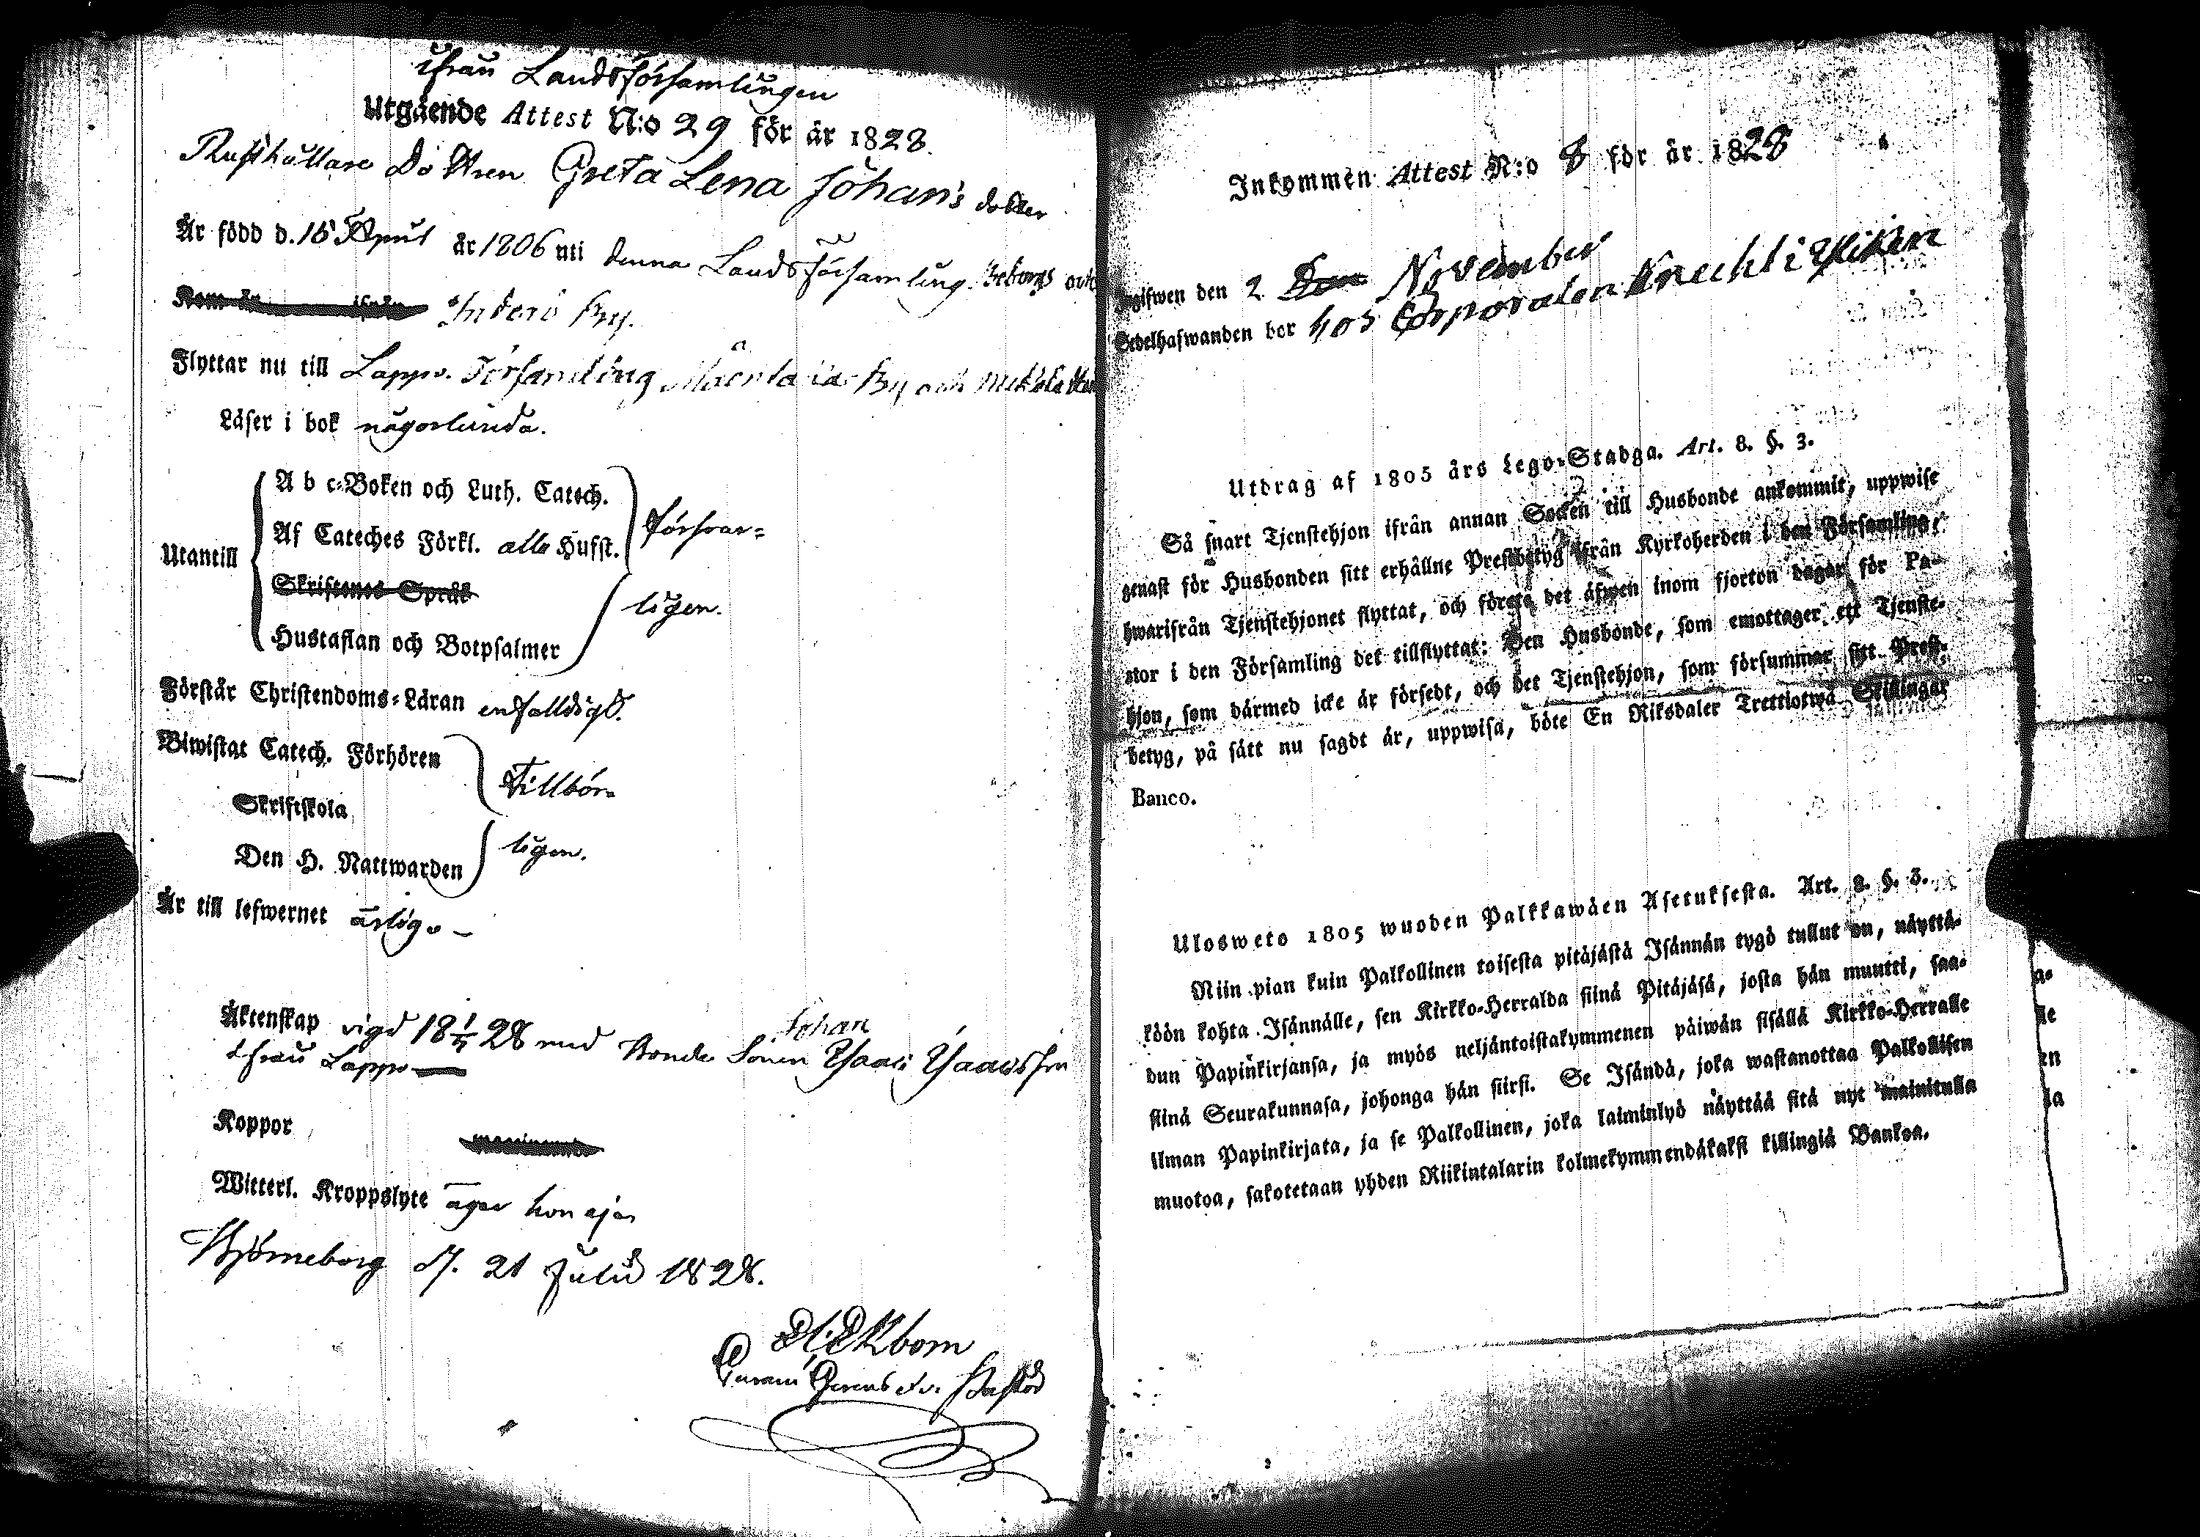 ifrån Landsförsamlingen
Utgående Attest N:o 29 för år 1828.
Rusthållare Dottren Greta Lena Johans dotter
Är född d. 15 April år 1806 uti denna Landsförsamling
By.
Flyttar nu till Lappo. Församling By och
Läser i bok någorlunda.
A b c-Boken och Luth. Catech.
Af Cateches Förkl. alla Hufst. försvar-
Utantill
Skriftenes Språk
ligen.
Hustaflan och Botpsalmer
Förstår Christendoms-Läran enfalldigt.
Biwistat Catech. Förhören
Tillbör-
Skriftskola
ligen.
Den H. Nattwarden
Är till lefwernet ärlig
Johan
Äktenskap vigd 18 28 med Bonde Sonen Isaac Isaacsson
ifrån Lappo
Koppor
Witterl. Kroppslyte äger hon ej.
Björneborg d. 21 Julii 1828.
Ekbom
Inkommen Attest N:o 8 för år 1828
Ingifwen den 2 November
Sedelhafwanden bor hos Corporalen Knecht i
Utdrag af 1805 års Lego-Stadga. Art. 8. §. 3.
Så snart Tjenstehjon ifrån annan Socken till Husbonde ankommit, uppwise
genast för Husbonden sitt erhållne Prestbetyg ifrån Kyrkoherden i den Församling,
hwarifrån Tjenstehjonet flyttat, och förete det äfwen inom fjorton dagar för Pa-
stor i den Församling det tillflyttat: Den Husbonde, som emottager ett Tjenste-
hjon, som därmed icke är försedt, och det Tjenstehjon, som försummar sitt Prest-
betyg, på sätt nu sagdt är, uppwisa, böte En Riksdaler Trettiotwå Skillingar
Banco.
Ulosweto 1805 wuoden Palkkawäen Asetuksesta. Art. 8. §. 3.
Niin pian kuin Palkollinen toisesta pitäjästä Isännän tygö tullut on, näyttä-
köön kohta Isännälle, sen Kirkko-Herralda siinä Pitäjäsä, josta hän muutti, saa-
dun Papinkirjansa, ja myös neljäntoistakymmenen päiwän sisällä Kirkko-Herralle
siinä Seurakunnasa, johonga hän siirsi. Se Isändä, joka wastanottaa Palkollisen
ilman Papinkirjata, ja se Palkollinen, joka laiminlyö näyttää sitä nyt mainitulla
muotoa, sakotetaan yhden Riikintalarin kolmekymmendäkaksi killingiä Bankoa.